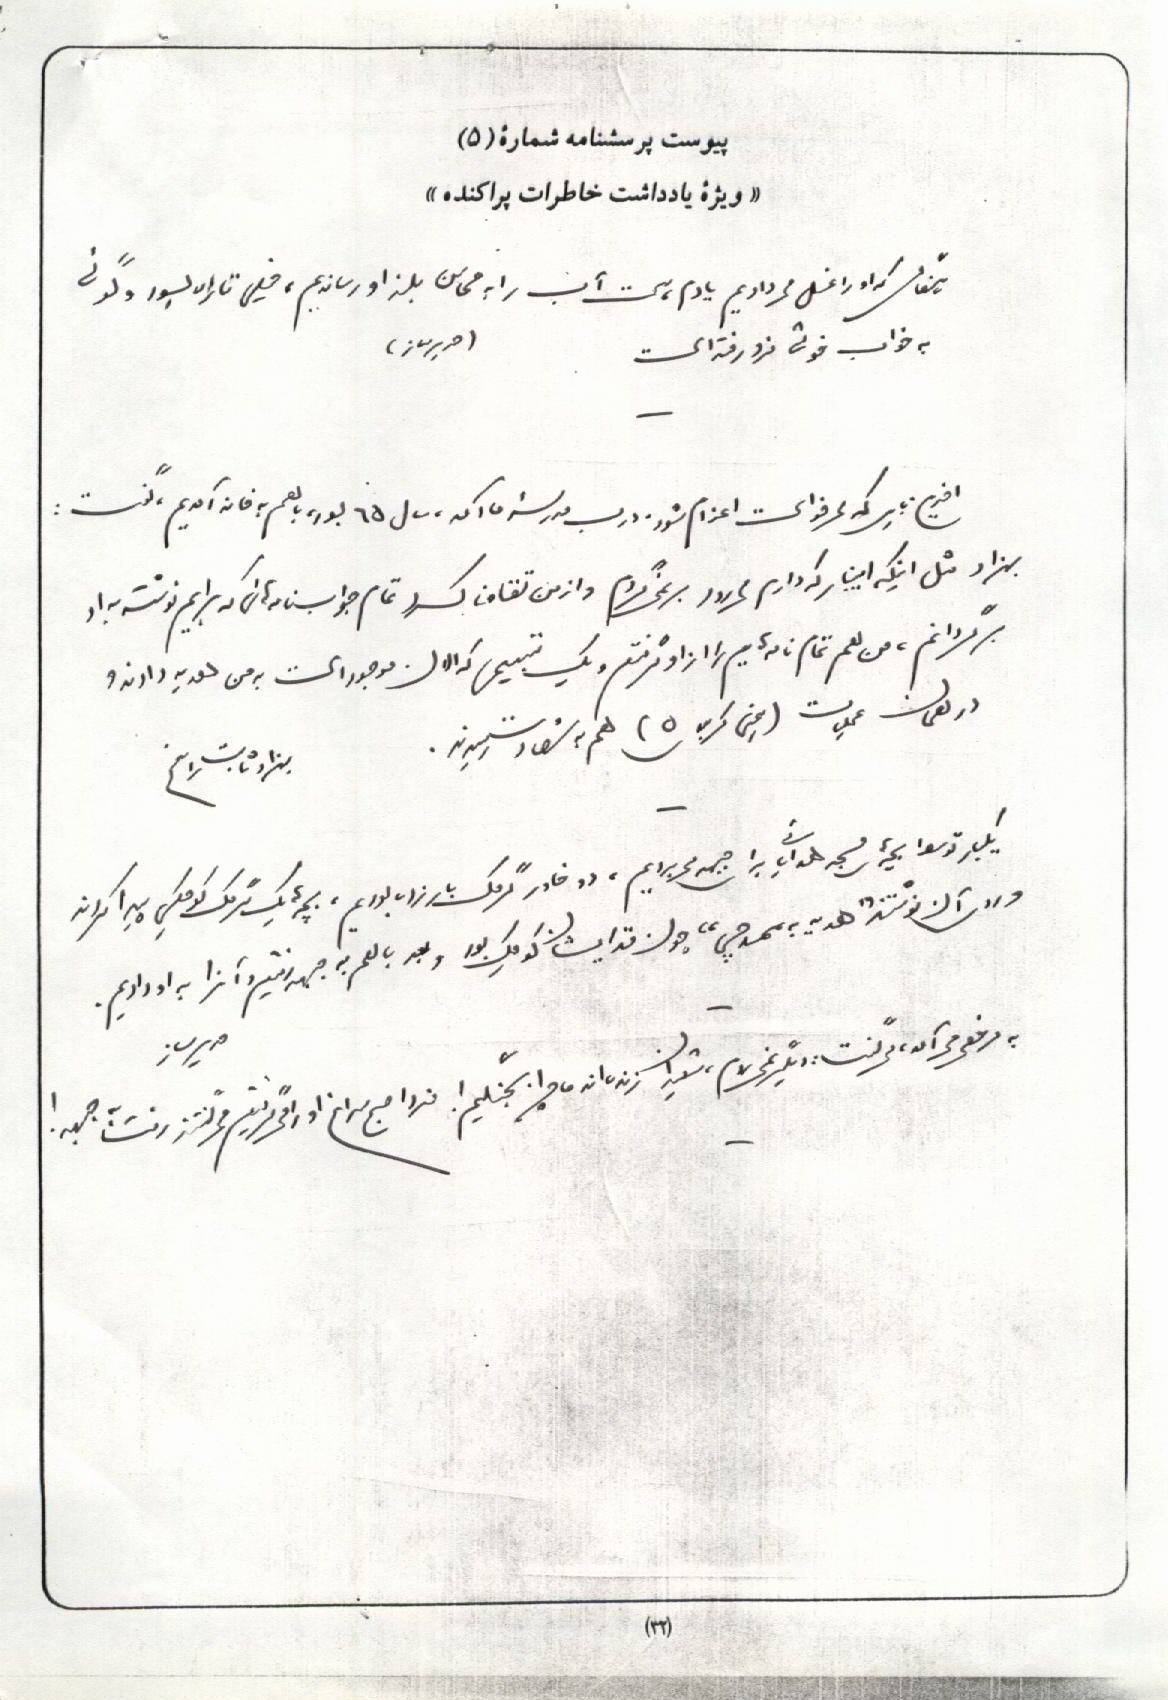 پیوست پرسشنامه شمارهٔ (۵)
« ویژهٔ یادداشت خاطرات پراکنده »
که او را غسل می‌دادیم یادم است آب را به محاسن بلند او رساندیم، خیلی تازه بود و گوئی
به خواب خوشی فرو رفته است (حریرساز)
اخرین باری که می‌خواست اعزام شود، درب مدرسه ما آمد، سال ٦٥ بود، باهم به خانه آمدیم، گفت :
بهزاد مثل اینکه اینبار که دارم می‌روم برنمی‌گردم و از من تقاضا کرد تمام جواب نامه‌هائی که برایم نوشته به او
برگردانم، من هم تمام نامه‌هایم را از او گرفتم و یک تسبیحی که الان موجود است به من هدیه دادند و
در همان عملیات (یعنی کربلای ۵) هم به شهادت رسیدند.
بهزاد ثابت راسخ
یکبار توسط بچه‌های مسجد هدایائی برای جبهه می‌بردیم، در
و روی آن نوشتند «هدیه به چی» چون قد ایشان کوچک بود و بعد باهم به جبهه رفتیم و آنرا به او دادیم.
حریرساز
به مرخصی می‌آمد، می‌گفت: دیگر نمی‌روم، زنده‌اند ما چرا بجنگیم! فردا صبح سراغ او را می‌گرفتیم می‌گفتند رفته به جبهه!
(۳۲)